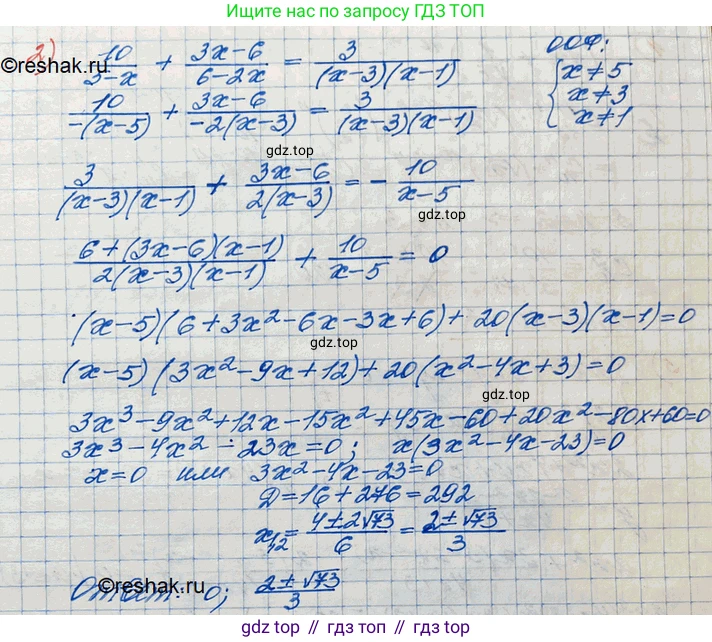 Ищите нас по запросу ГДЗ ТОП
©reshak.ru
2) 10/(5-x) + (3x-6)/(6-2x) = 3/((x-3)(x-1)) ООФ:
10/(-(x-5)) + (3x-6)/(-2(x-3)) = 3/((x-3)(x-1)) { x≠5 x≠3 x≠1
gdz.top
3/((x-3)(x-1)) + (3x-6)/(2(x-3)) = - 10/(x-5)
gdz.top
(6+(3x-6)(x-1))/(2(x-3)(x-1)) + 10/(x-5) = 0
(x-5)(6+3x²-6x-3x+6)+20(x-3)(x-1)=0
gdz.top
(x-5)(3x²-9x+12)+20(x²-4x+3)=0
gdz.top
3x³-9x²+12x-15x²+45x-60+20x²-80x+60=0
3x³-4x²-23x=0; x(3x²-4x-23)=0
x=0 или 3x²-4x-23=0
Д=16+276=292
x₁,₂ = (4±2√73)/6 = (2±√73)/3
©reshak.ru
Ответ: 0; (2±√73)/3
gdz.top // гдз топ // gdz.top